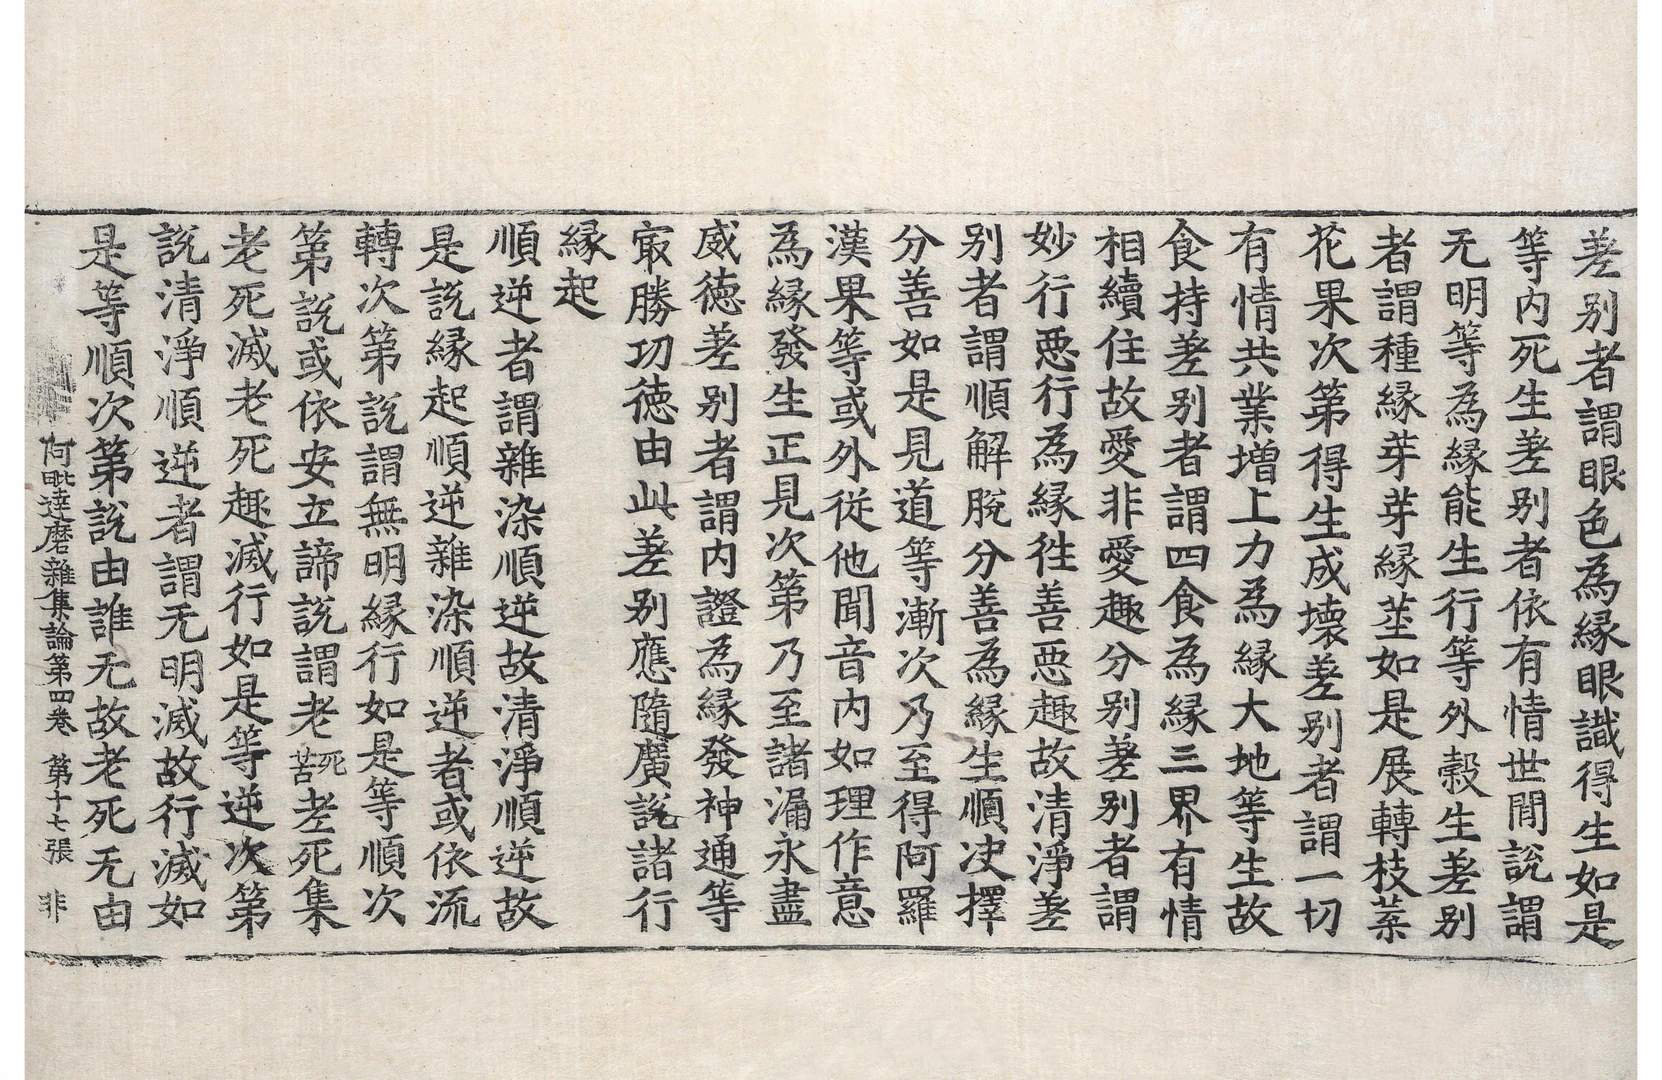 差别者謂眼色為縁眼識得生如是
等内死生差别者依有情世間說謂
无明等為縁能生行等外穀生差别
者謂種縁芽芽縁莖如是展轉枝葉
花果次第得生成壞差别者謂一切
有情共業增上力為縁大地等生故
食持差别者謂四食為縁三界有情
相續住故愛非愛趣分别差别者謂
妙行惡行為縁徃善惡趣故清淨差
别者謂順解脫分善為縁生順决擇
分善如是見道等漸次乃至得阿羅
漢果等或外從他聞音内如理作意
為縁發生正見次第乃至諸漏永盡
威德差别者謂内證為縁發神通等
㝡勝功德由此差别應隨廣說諸行
縁起
順逆者謂雜染順逆故清淨順逆故
是說縁起順逆雜染順逆者或依流
轉次第說謂無明縁行如是等順次
第說或依安立諦說謂老死苦老死集
老死滅老死趣滅行如是等逆次第
說清淨順逆者謂无明滅故行滅如
是等順次第說由誰无故老死无由
阿毗達磨雜集論第四卷 第十七張 非